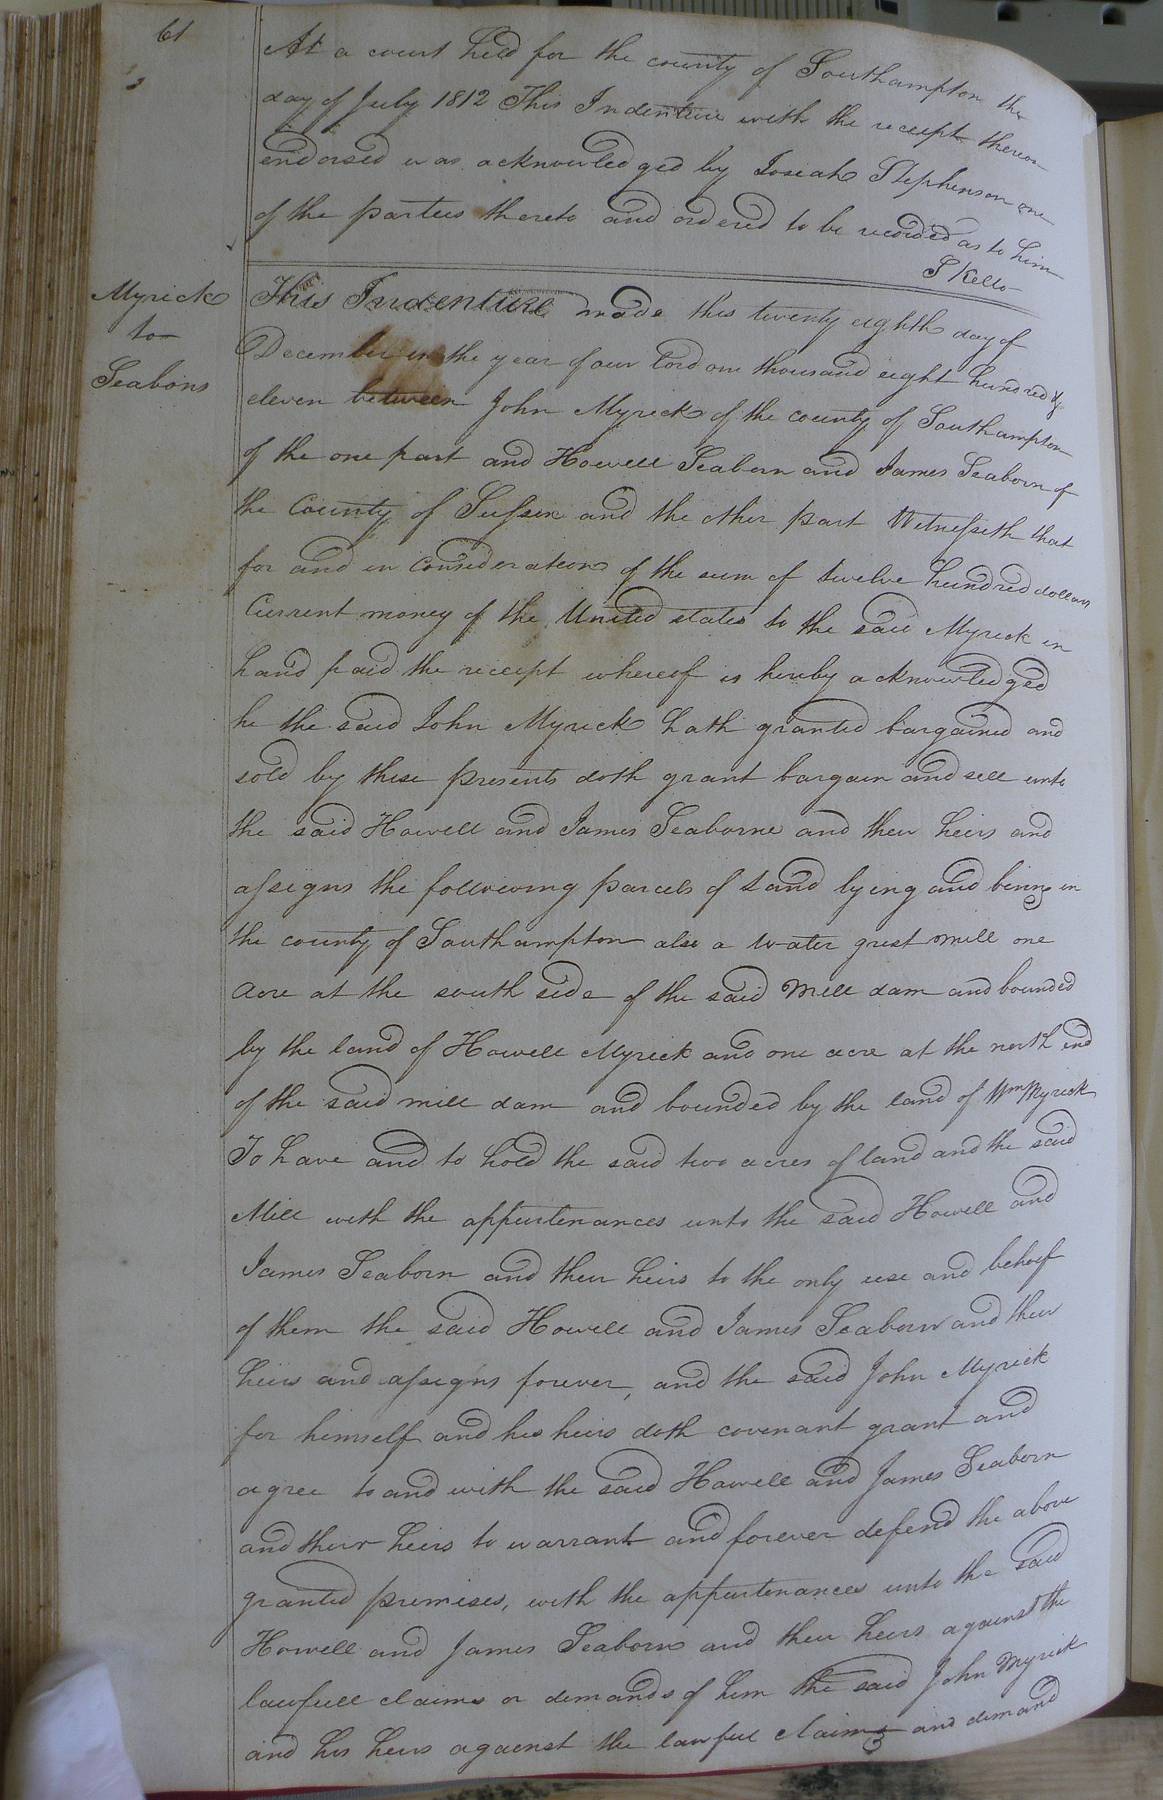 61
At a court held for the county of Southampton the
day of July 1812 This Indenture with the receipt thereon
endorsed was acknowledged by Joseah Stephenson one
of the parties thereto and ordered to be recorded as to him
S Kello
Myrick
to
Seaborns
This Indenture made this twenty eighth day of
December in the year of our Lord one thousand eight hundred &
eleven between John Myrick of the county of Southampton
of the one part and Howell Seaborn and James Seaborn of
the County of Sussex and the other part Witnesseth that
for and in Consideration of the sum of twelve hundred dollars
Current money of the United states to the said Myrick in
hand paid the receipt whereof is hereby acknowledged
he the said John Myrick hath granted bargained and
sold by these presents doth grant bargain and sell unto
the said Howell and James Seaborne and their heirs and
assigns the following parcels of Land lying and being in
the county of Southampton also a water grist mill one
acre at the south side of the said Mill dam and bounded
by the land of Howell Myrick and one acre at the north end
of the said mill dam and bounded by the land of Wm Myrick
To have and to hold the said two acres of land and the said
Mill with the appurtenances unto the said Howell and
James Seaborn and their heirs to the only use and behoof
of them the said Howell and James Seaborn and their
heirs and assigns forever, and the said John Myrick
for himself and his heirs doth covenant grant and
agree to and with the said Howell and James Seaborn
and their heirs to warrant and forever defend the above
granted premises, with the appurtenances unto the said
Howell and James Seaborn and their heirs against the
lawfull claims or demands of him the said John Myrick
and his heirs against the lawful claims and demand